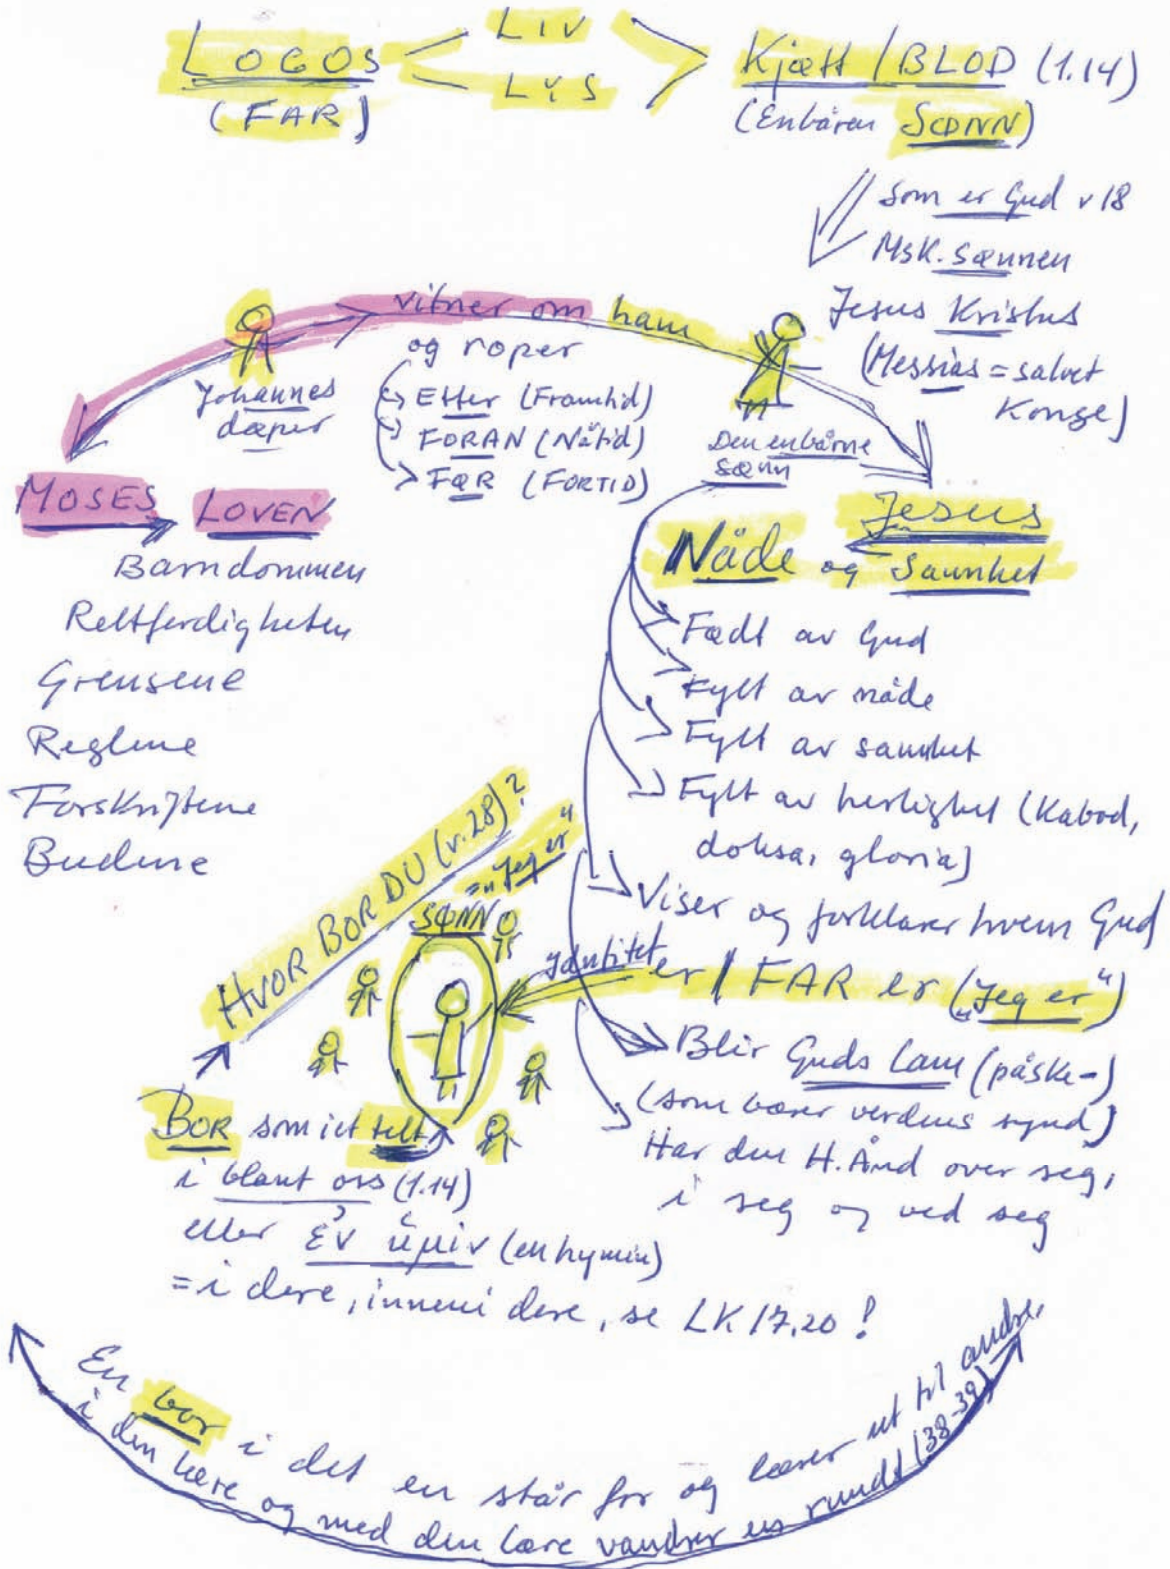 LOGOS
(FAR)
LIV
LYS
Kjøtt / BLOD (1.14)
(Enbåren SØNN)
som er Gud v 18
Msk. sønnen
Jesus Kristus
(Messias = salvet
Konge)
vitner om ham
og roper
Etter (Framtid)
FORAN (Nåtid)
FØR (FORTID)
Johannes
døper
Den enbårne
sønn
MOSES
LOVEN
Barndommen
Rettferdigheten
Grensene
Reglene
Forskriftene
Budene
Jesus
Nåde og Sannhet
Født av Gud
Fylt av nåde
Fylt av sannhet
Fylt av herlighet (Kabod,
doksa, gloria)
Viser og forklarer hvem Gud
er / FAR er („Jeg er“)
Identitet
Blir Guds Lam (påske-)
(som bærer verdens synd)
Har den H. Ånd over seg,
i seg og ved seg
HVOR BOR DU (v. 28)?
= „Jeg er“
SØNN
BOR som i et telt
i blant oss (1.14)
eller ἐν ὑμῖν (en hymin)
= i dere, inneni dere, se LK 17,20 !
En bor i det en står for og lærer ut til andre,
i den lære og med den lære vandrer en rundt (38-39)